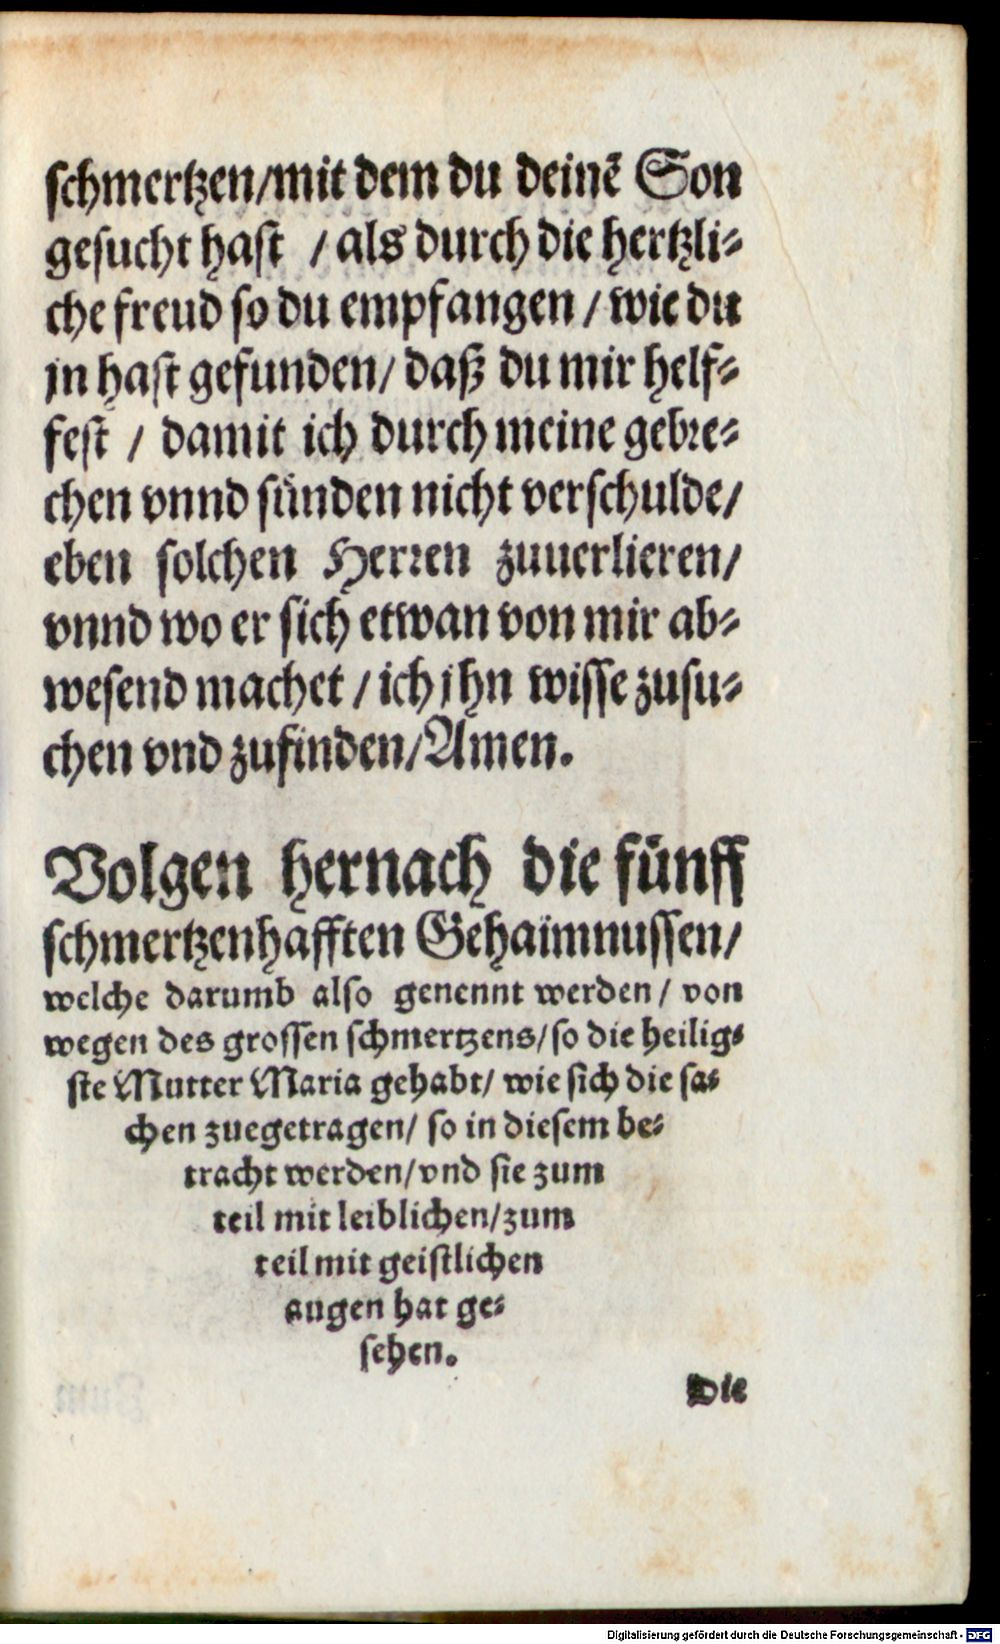 schmertzen/mit dem du deinẽ Son
gesucht hast / als durch die hertzli⸗
che freud so du empfangen / wie du
jn hast gefunden/ daß du mir helf⸗
fest / damit ich durch meine gebre⸗
chen vnnd sünden nicht verschulde/
eben solchen Herren zuuerlieren/
vnnd wo er sich etwan von mir ab⸗
wesend machet / ich jhn wisse zusu⸗
chen vnd zufinden/Amen.
Volgen hernach die fünff
schmertzenhafften Gehaimnussen/
welche darumb also genennt werden/ von
wegen des grossen schmertzens/so die heilig⸗
ste Mutter Maria gehabt/ wie sich die sa⸗
chen zuegetragen/ so in diesem be⸗
tracht werden/vnd sie zum
teil mit leiblichen/zum
teil mit geistlichen
augen hat ge⸗
sehen.
Die
Digitalisierung gefördert durch die Deutsche Forschungsgemeinschaft - DFG